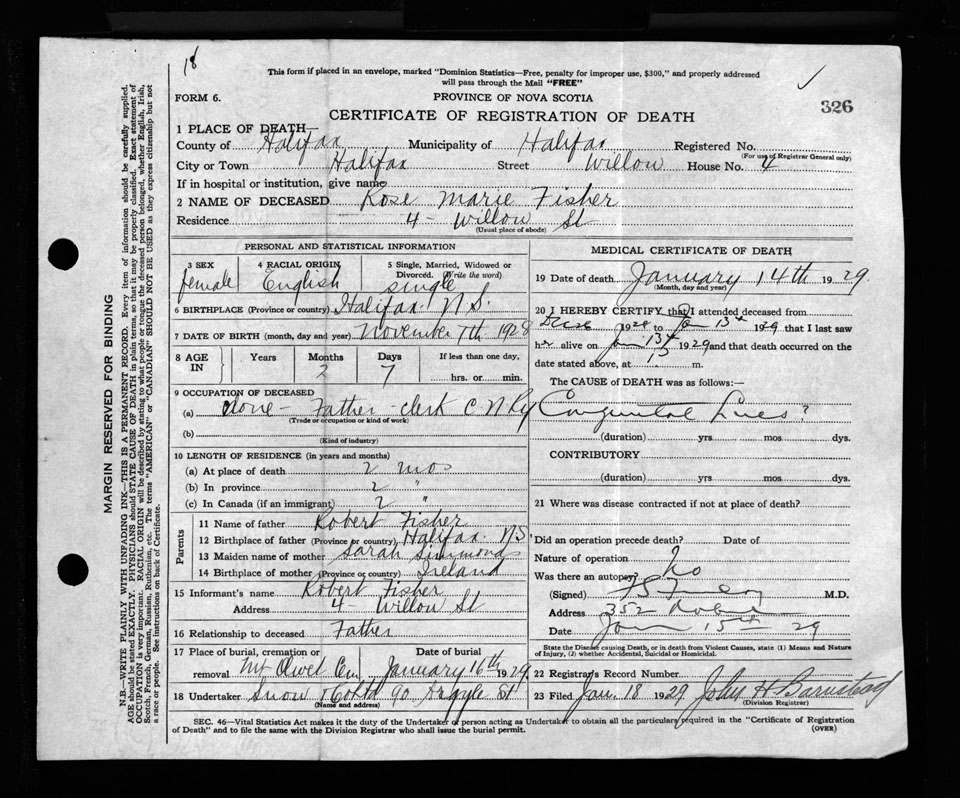 18
This form if placed in an envelope, marked "Dominion Statistics—Free, penalty for improper use, $300," and properly addressed
will pass through the Mail "FREE"
FORM 6.
PROVINCE OF NOVA SCOTIA
326
CERTIFICATE OF REGISTRATION OF DEATH
1 PLACE OF DEATH—
County of Halifax Municipality of Halifax Registered No.
(For use of Registrar General only)
City or Town Halifax Street Willow House No. 4
If in hospital or institution, give name
2 NAME OF DECEASED Rose Marie Fisher
Residence 4 - Willow St
(Usual place of abode)
PERSONAL AND STATISTICAL INFORMATION
3 SEX 4 RACIAL ORIGIN 5 Single, Married, Widowed or Divorced. (Write the word)
female English single
6 BIRTHPLACE (Province or country) Halifax N S.
7 DATE OF BIRTH (month, day and year) November 7th 1928
8 AGE IN Years Months Days If less than one day,
2 7 hrs. or min.
9 OCCUPATION OF DECEASED
(a) None - Father - clerk C N Ry
(Trade or occupation or kind of work)
(b)
(Kind of industry)
10 LENGTH OF RESIDENCE (in years and months)
(a) At place of death 2 mos
(b) In province 2 "
(c) In Canada (if an immigrant) 2 "
Parents
11 Name of father Robert Fisher
12 Birthplace of father (Province or country) Halifax NS
13 Maiden name of mother Sarah Simmonds
14 Birthplace of mother (Province or country) Ireland
15 Informant's name Robert Fisher
Address 4 - Willow St
16 Relationship to deceased Father
17 Place of burial, cremation or removal Date of burial
Mt Olivet Cem January 16th 1929
18 Undertaker Snow & Co Ltd 90 Argyle St
(Name and address)
MEDICAL CERTIFICATE OF DEATH
19 Date of death January 14th 1929
(Month, day and year)
20 I HEREBY CERTIFY that I attended deceased from
1928 to Jan 13th 1929 that I last saw
h alive on Jan 13th 1929 and that death occurred on the
date stated above, at m.
The CAUSE of DEATH was as follows:—
Congenital Lues?
(duration) yrs. mos. dys.
CONTRIBUTORY
(duration) yrs. mos. dys.
21 Where was disease contracted if not at place of death?
Did an operation precede death? Date of
Nature of operation
Was there an autopsy? No
(Signed) M.D.
Address 352
Date Jan 15th 29
State the Disease causing Death, or in death from Violent Causes, state (1) Means and Nature
of Injury, (2) whether Accidental, Suicidal or Homicidal.
22 Registrar's Record Number
23 Filed Jan. 18 1929 John H Barnstead
(Division Registrar)
SEC. 46—Vital Statistics Act makes it the duty of the Undertaker or person acting as Undertaker to obtain all the particulars required in the "Certificate of Registration
of Death" and to file the same with the Division Registrar who shall issue the burial permit.
(OVER)
MARGIN RESERVED FOR BINDING
N.B.—WRITE PLAINLY WITH UNFADING INK—THIS IS A PERMANENT RECORD. Every item of information should be carefully supplied.
AGE should be stated EXACTLY. PHYSICIANS should STATE CAUSE OF DEATH in plain terms, so that it may be properly classified. Exact statement of
OCCUPATION is very important. RACIAL ORIGIN will be described by stating to what people or tongue the deceased person belonged, whether English, Irish,
Scotch, French, German, Russian, Ruthenian, etc. The terms "AMERICAN" or "CANADIAN" SHOULD NOT BE USED as they express citizenship but not
a race or people. See instructions on back of Certificate.